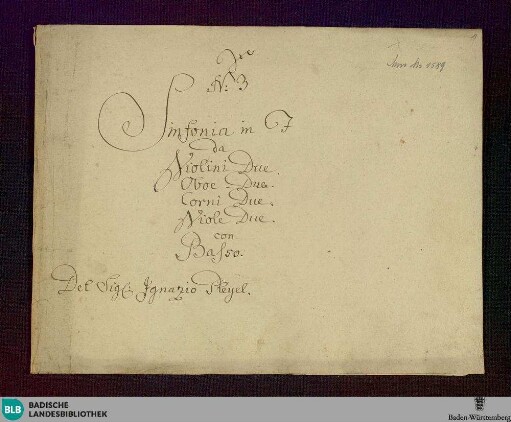 No: 3
Sinfonia in F
da
Violini Due.
Oboe Due.
Corni Due.
Viole Due.
con
Basso.
Del Sigl. Ignazio Pleyel.
BLB
BADISCHE
LANDESBIBLIOTHEK
Baden-Württemberg